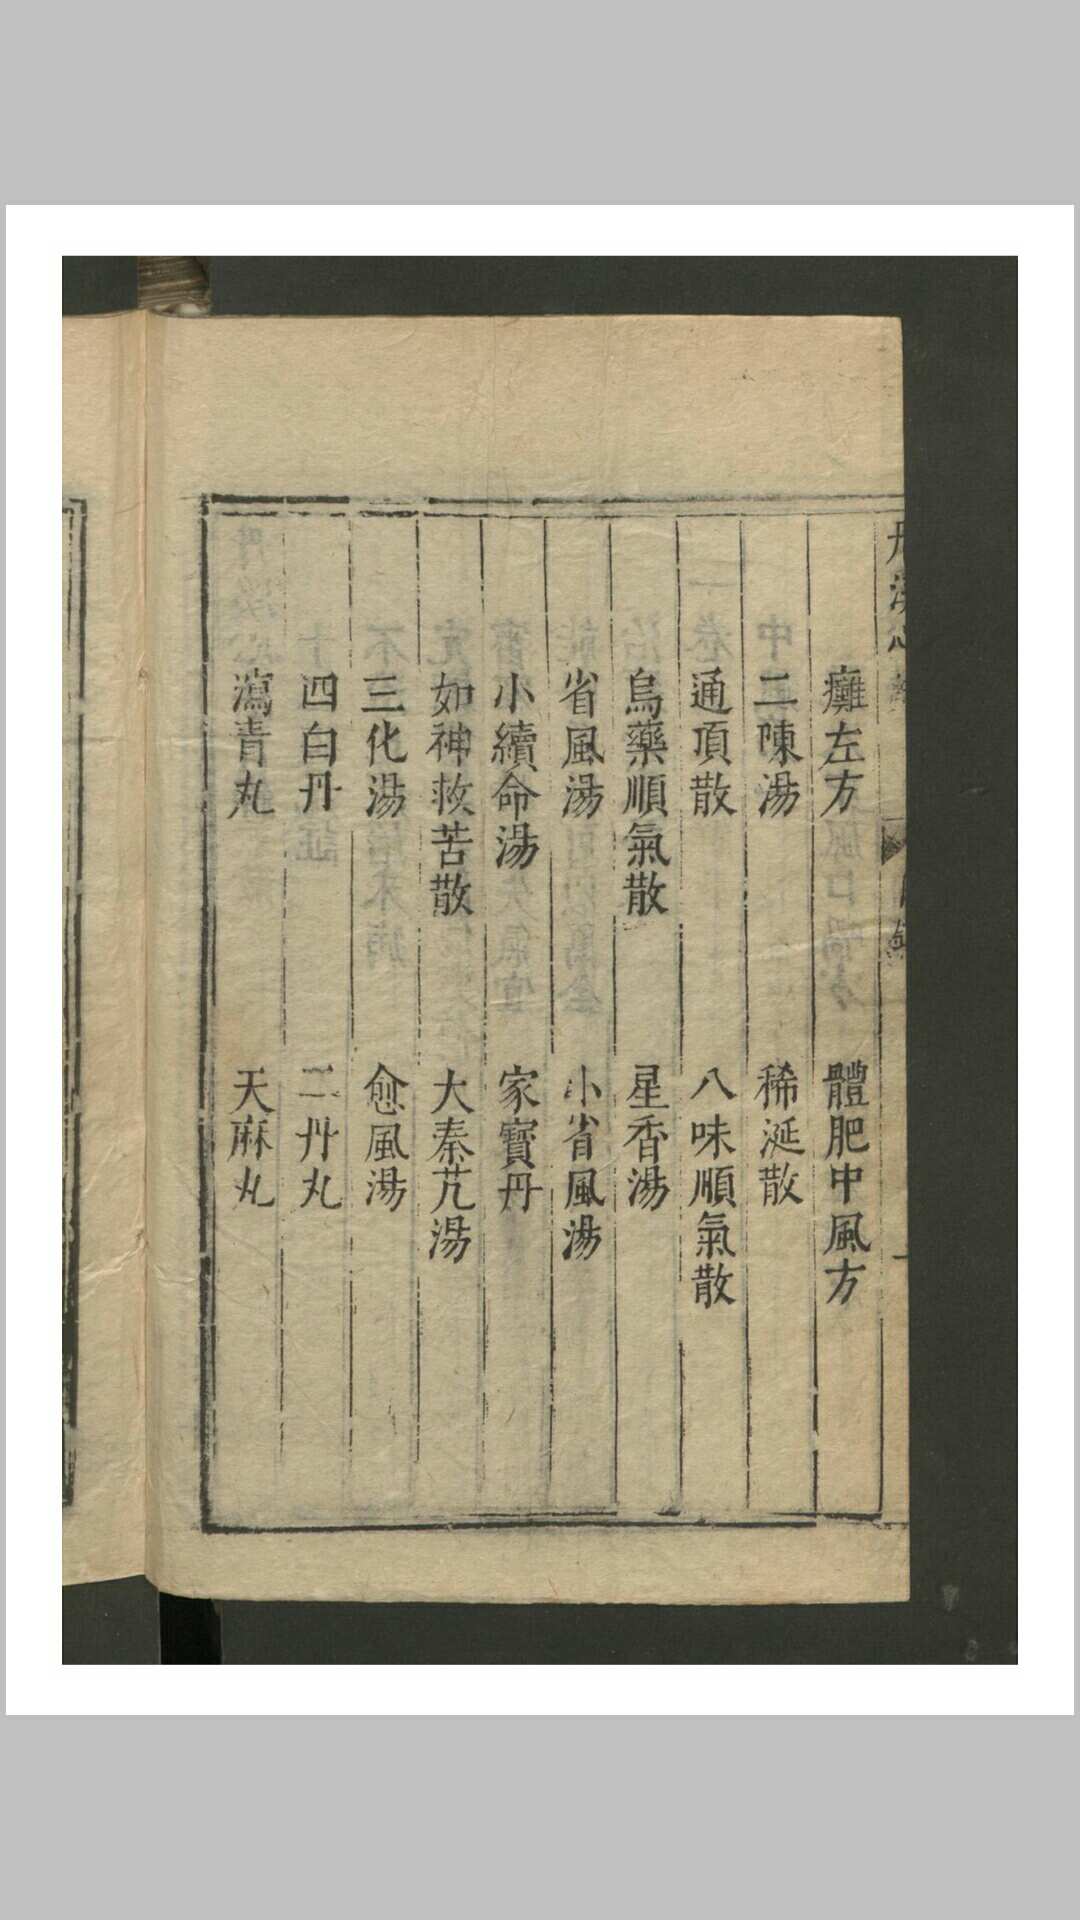 癱左方　體肥中風方
二陳湯　稀涎散
通頂散　八味順氣散
烏藥順氣散　星香湯
省風湯　小省風湯
小續命湯　家寳丹
如神救苦散　大秦艽湯
三化湯　愈風湯
四白丹　二丹丸
瀉青丸　天麻丸